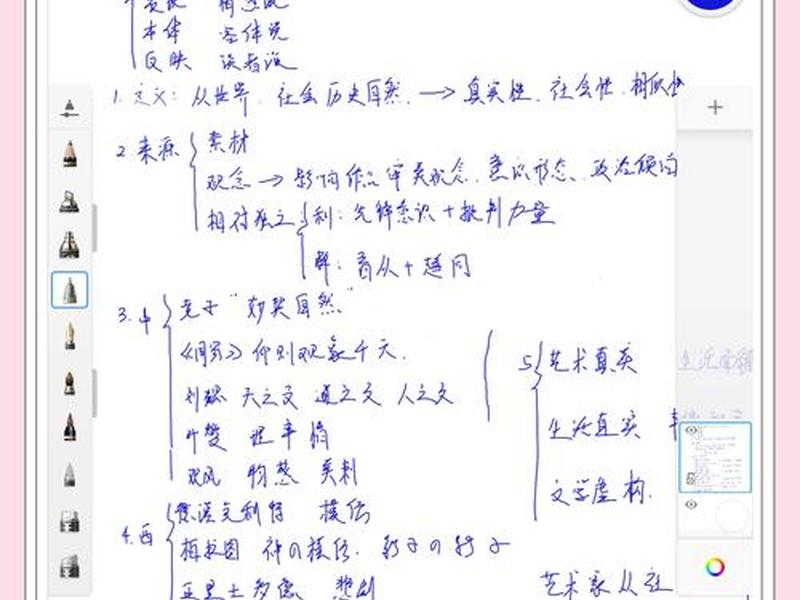 本体 客体说
反映 读者说
1. 定义: 从世界、社会历史自然. → 真实性、社会性、相似性
2 来源 素材
观念 → 影响作品审美观念、意识形态、政治倾向
相对独立 利: 先锋意识+批判力量
弊: 盲从+趋同
3. 中 老子 "妙契自然"
《周易》仰则观象于天.
刘勰 天之文 道之文 人之文
叶燮 理事情
观风 物感 美刺
5 艺术真实
生活真实
文学虚构.
4. 西 赫拉克利特 模仿
柏拉图 神の模仿. 影子の影子
亚里士多德 悲剧
艺术家从社